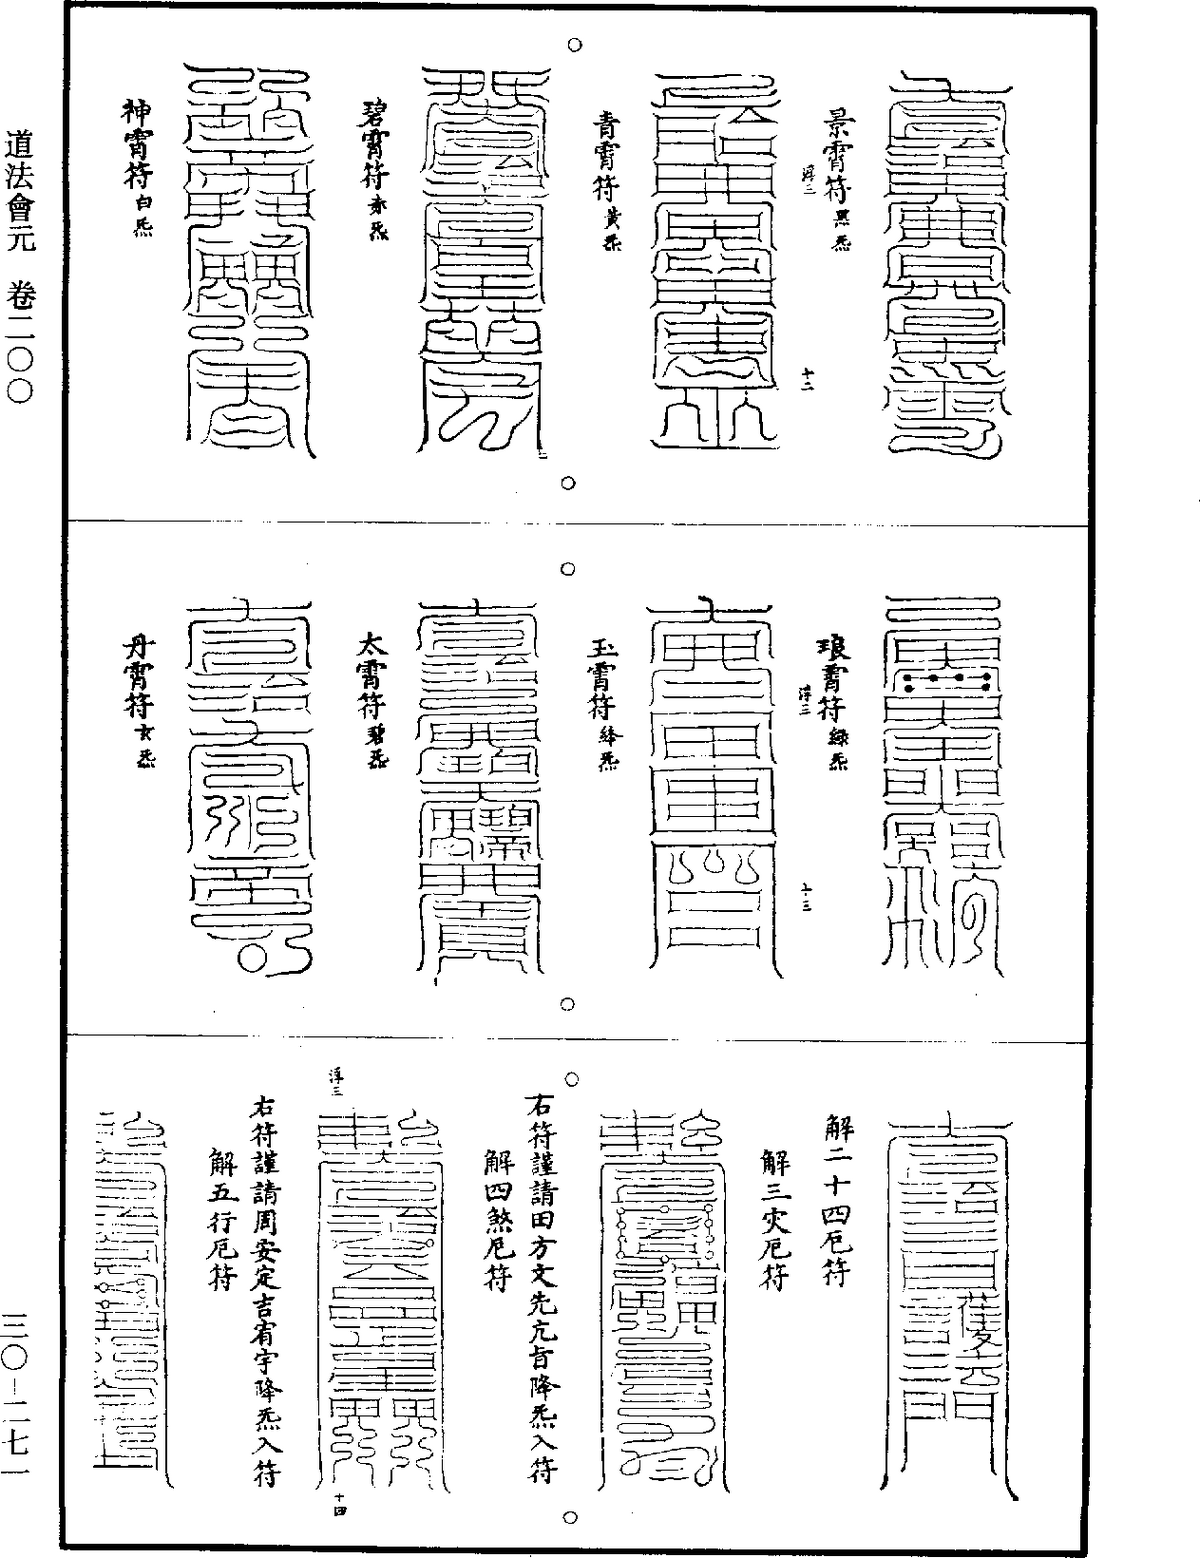 景霄符 黑炁
浮三
十二
青霄符 黃炁
碧霄符 赤炁
神霄符 白炁
琅霄符 綠炁
浮三
十三
玉霄符 絳炁
太霄符 碧炁
丹霄符 玄炁
解二十四厄符
解三灾厄符
右符謹請田方文先亢旨降炁入符
解四煞厄符
浮三
十四
右符謹請周安定吉宥宇降炁入符
解五行厄符
道法會元 卷二〇〇
三〇—二七一